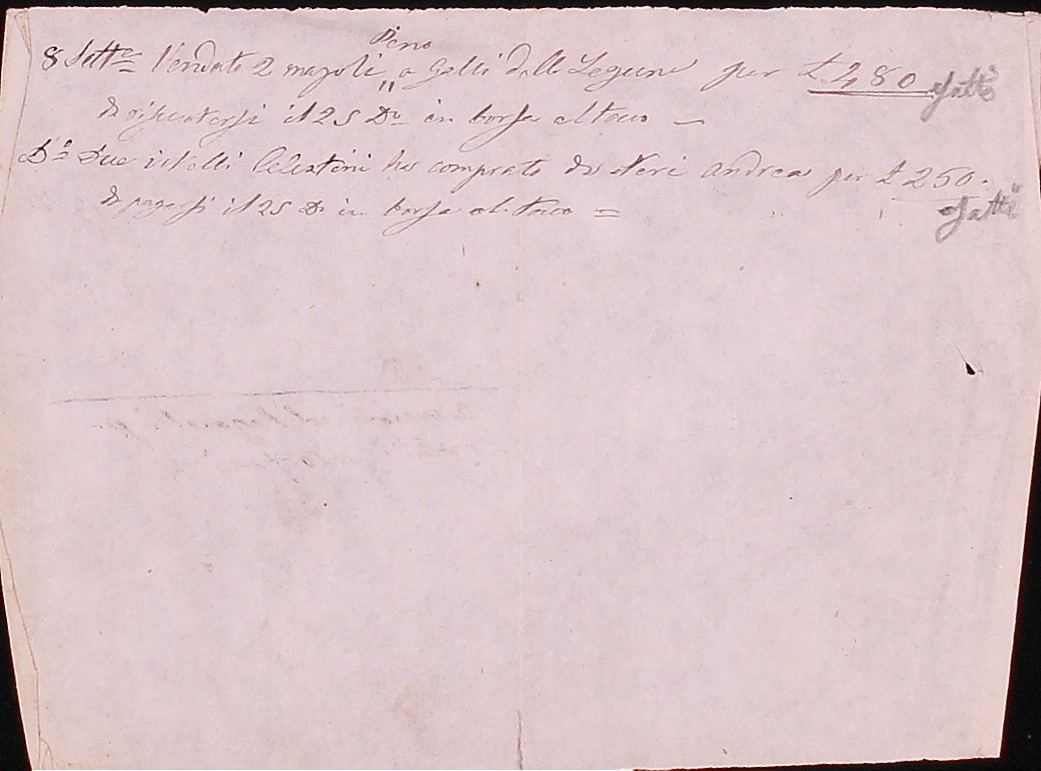 Pino
8 Sette Venduto 2 majoli a Galli dalle Legune per £ 480 fatto
da riscuotersi il 25 Do in borsa al toco —
Do Due vitelli Celestini ho comprato da Neri Andrea per £ 250.
da pagarsi il 25 Do in borsa al toco = fatto